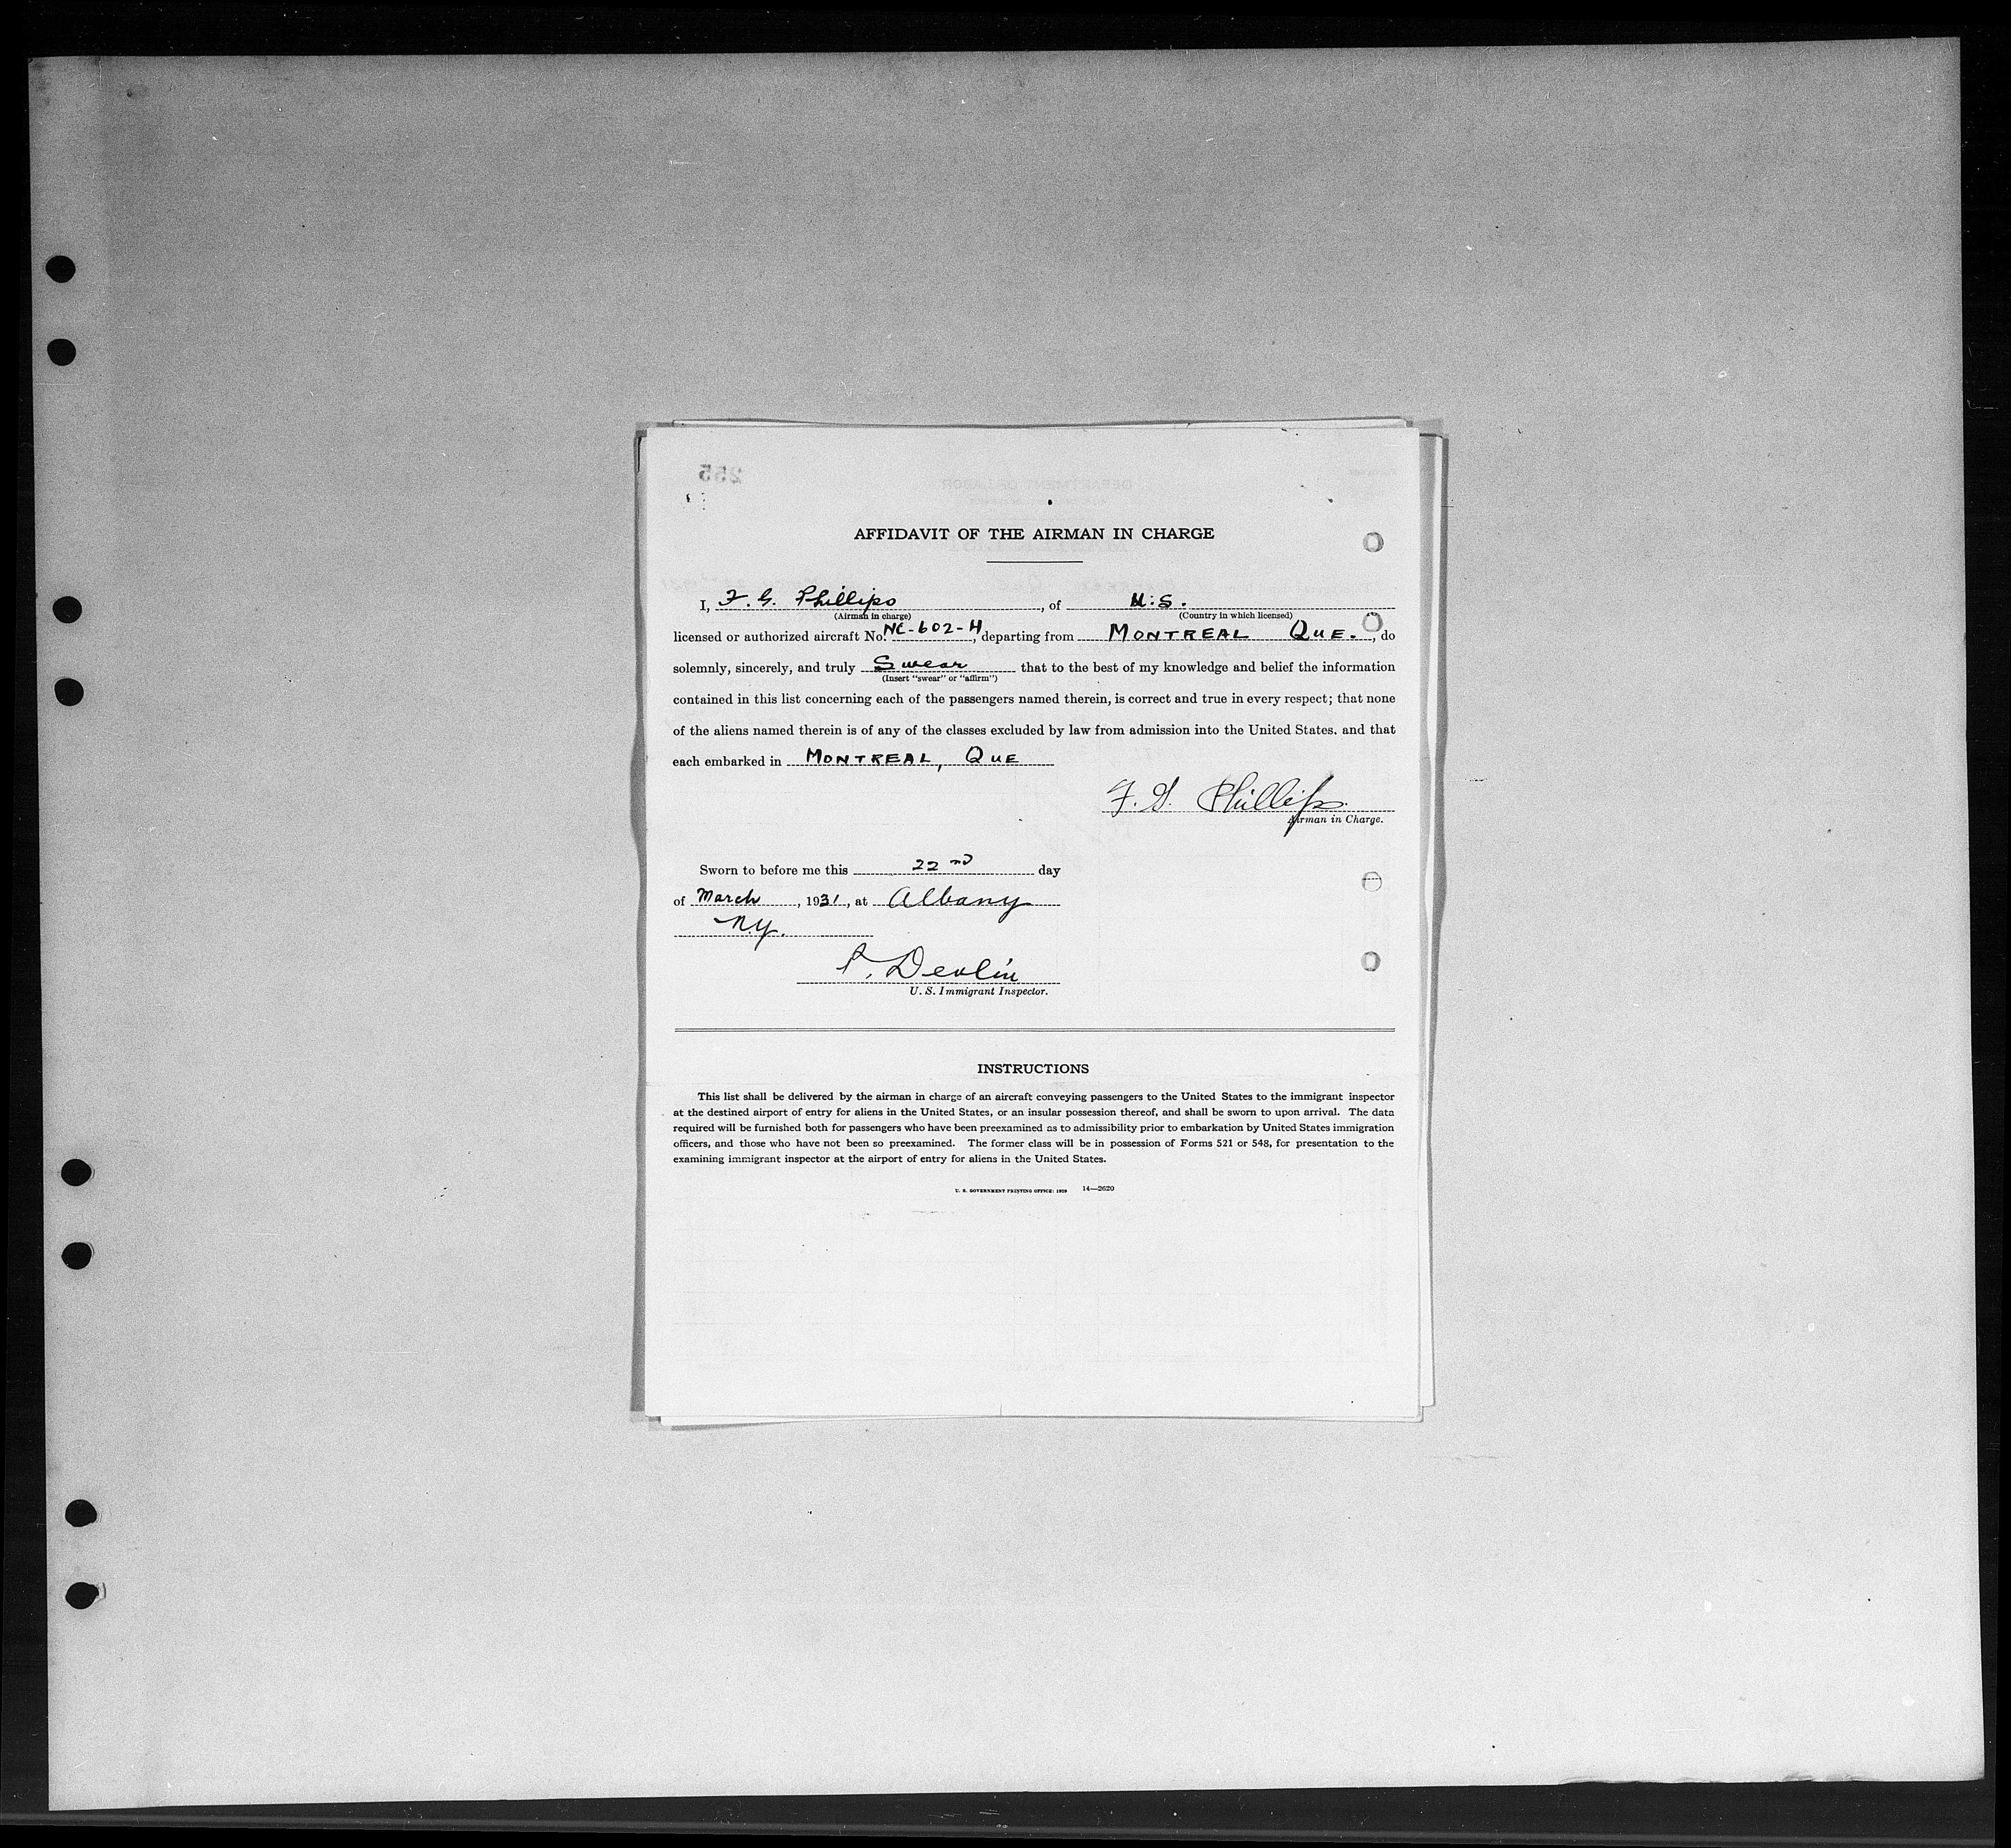 255
DEPARTMENT OF LABOR
AFFIDAVIT OF THE AIRMAN IN CHARGE
I, F. G. Phillips, of U.S.
(Airman in charge) (Country in which licensed)
licensed or authorized aircraft No. NC-602-H, departing from MONTREAL QUE., do
solemnly, sincerely, and truly Swear that to the best of my knowledge and belief the information
(Insert "swear" or "affirm")
contained in this list concerning each of the passengers named therein, is correct and true in every respect; that none
of the aliens named therein is of any of the classes excluded by law from admission into the United States. and that
each embarked in MONTREAL, QUE
F. G. Phillips.
Airman in Charge.
Sworn to before me this 22nd day
of March, 1931, at Albany
N.Y.
P. Devlin
U. S. Immigrant Inspector.
INSTRUCTIONS
This list shall be delivered by the airman in charge of an aircraft conveying passengers to the United States to the immigrant inspector
at the destined airport of entry for aliens in the United States, or an insular possession thereof, and shall be sworn to upon arrival. The data
required will be furnished both for passengers who have been preexamined as to admissibility prior to embarkation by United States immigration
officers, and those who have not been so preexamined. The former class will be in possession of Forms 521 or 548, for presentation to the
examining immigrant inspector at the airport of entry for aliens in the United States.
U. S. GOVERNMENT PRINTING OFFICE: 1929 14—2620